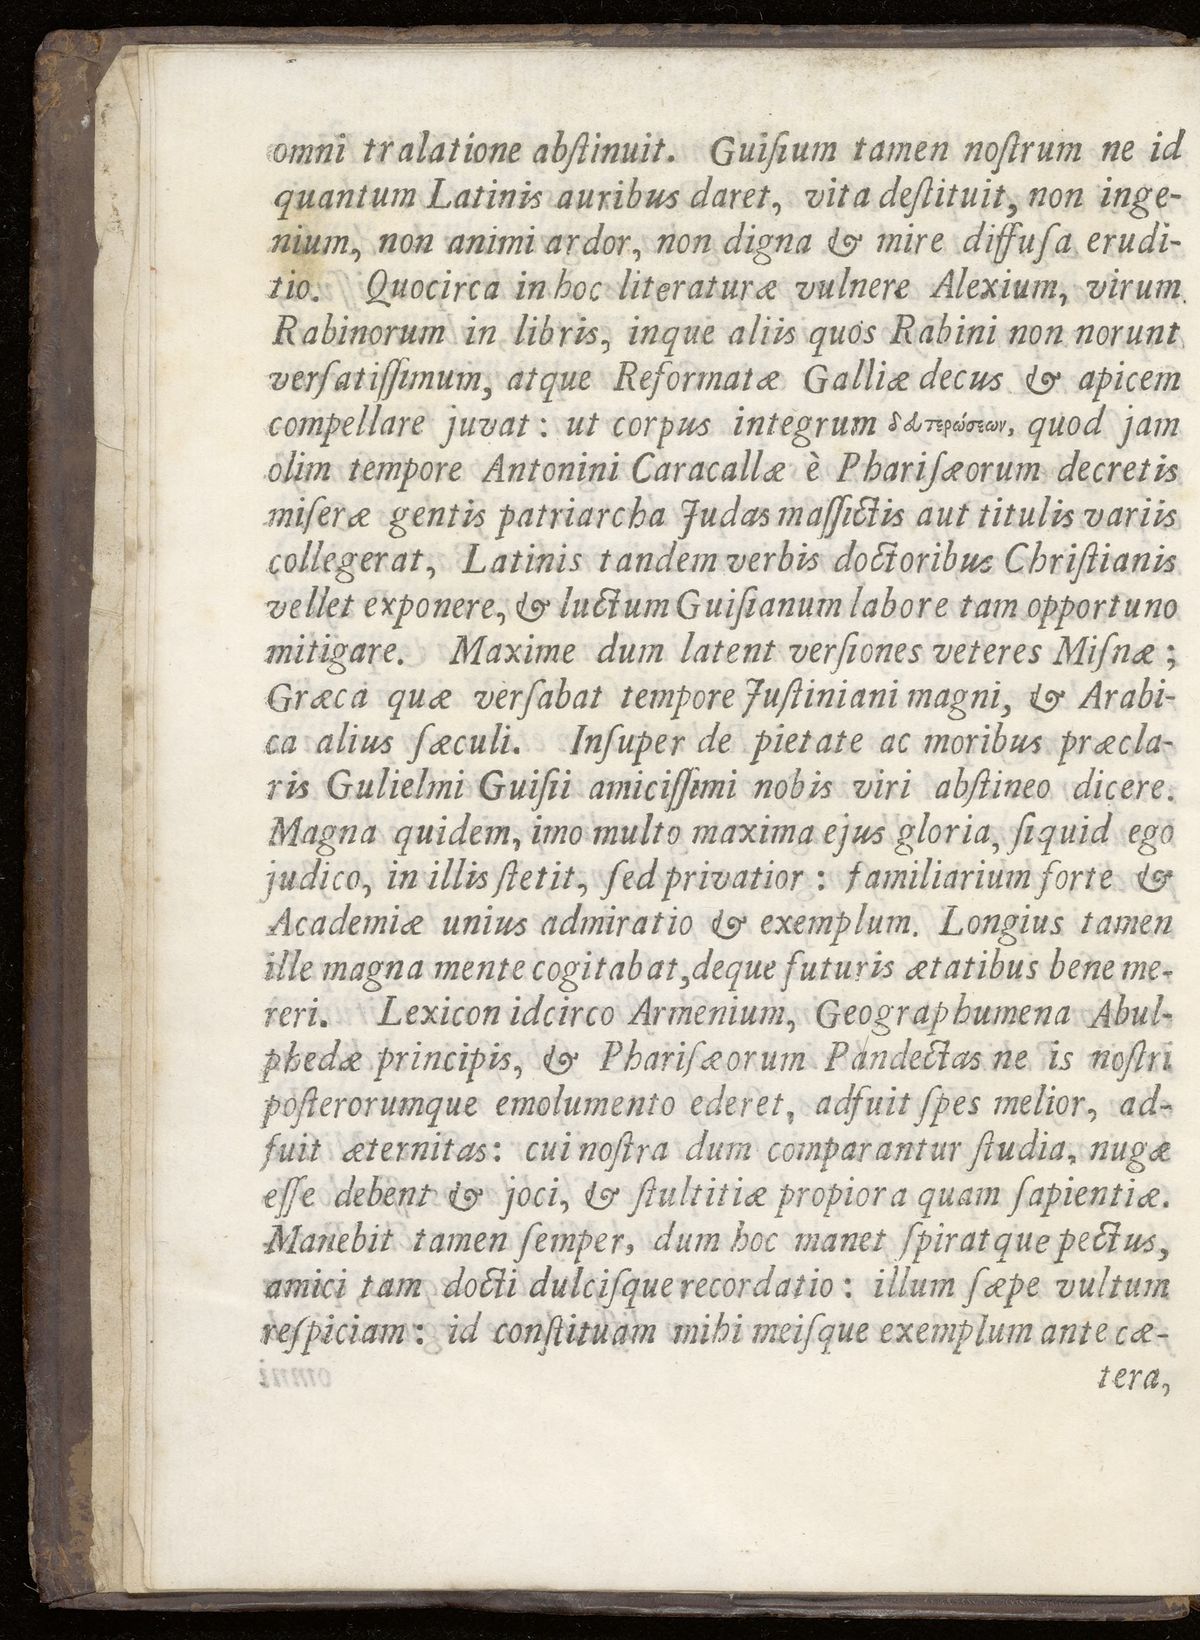 omni tralatione abſtinuit. Guiſium tamen noſtrum ne id
quantum Latinis auribus daret, vita deſtituit, non inge-
nium, non animi ardor, non digna & mire diffuſa erudi-
tio. Quocirca in hoc literaturæ vulnere Alexium, virum
Rabinorum in libris, inque aliis quos Rabini non norunt
verſatiſſimum, atque Reformatæ Galliæ decus & apicem
compellare juvat: ut corpus integrum δευτερώσεων, quod jam
olim tempore Antonini Caracallæ è Phariſæorum decretis
miſeræ gentis patriarcha Judas maſſictis aut titulis variis
collegerat, Latinis tandem verbis doctoribus Chriſtianis
vellet exponere, & luctum Guiſianum labore tam opportuno
mitigare. Maxime dum latent verſiones veteres Miſnæ;
Græca quæ verſabat tempore Juſtiniani magni, & Arabi-
ca alius ſæculi. Inſuper de pietate ac moribus præcla-
ris Gulielmi Guiſii amiciſſimi nobis viri abſtineo dicere.
Magna quidem, imo multo maxima ejus gloria, ſiquid ego
judico, in illis ſtetit, ſed privatior: familiarium forte &
Academiæ unius admiratio & exemplum. Longius tamen
ille magna mente cogitabat, deque futuris ætatibus bene me-
reri. Lexicon idcirco Armenium, Geographumena Abul-
phedæ principis, & Phariſæorum Pandectas ne is noſtri
poſterorumque emolumento ederet, adfuit ſpes melior, ad-
fuit æternitas: cui noſtra dum comparantur ſtudia, nugæ
eſſe debent & joci, & ſtultitiæ propiora quam ſapientiæ.
Manebit tamen ſemper, dum hoc manet ſpiratque pectus,
amici tam docti dulciſque recordatio: illum ſæpe vultum
reſpiciam: id conſtituam mihi meiſque exemplum ante cæ-
tera,